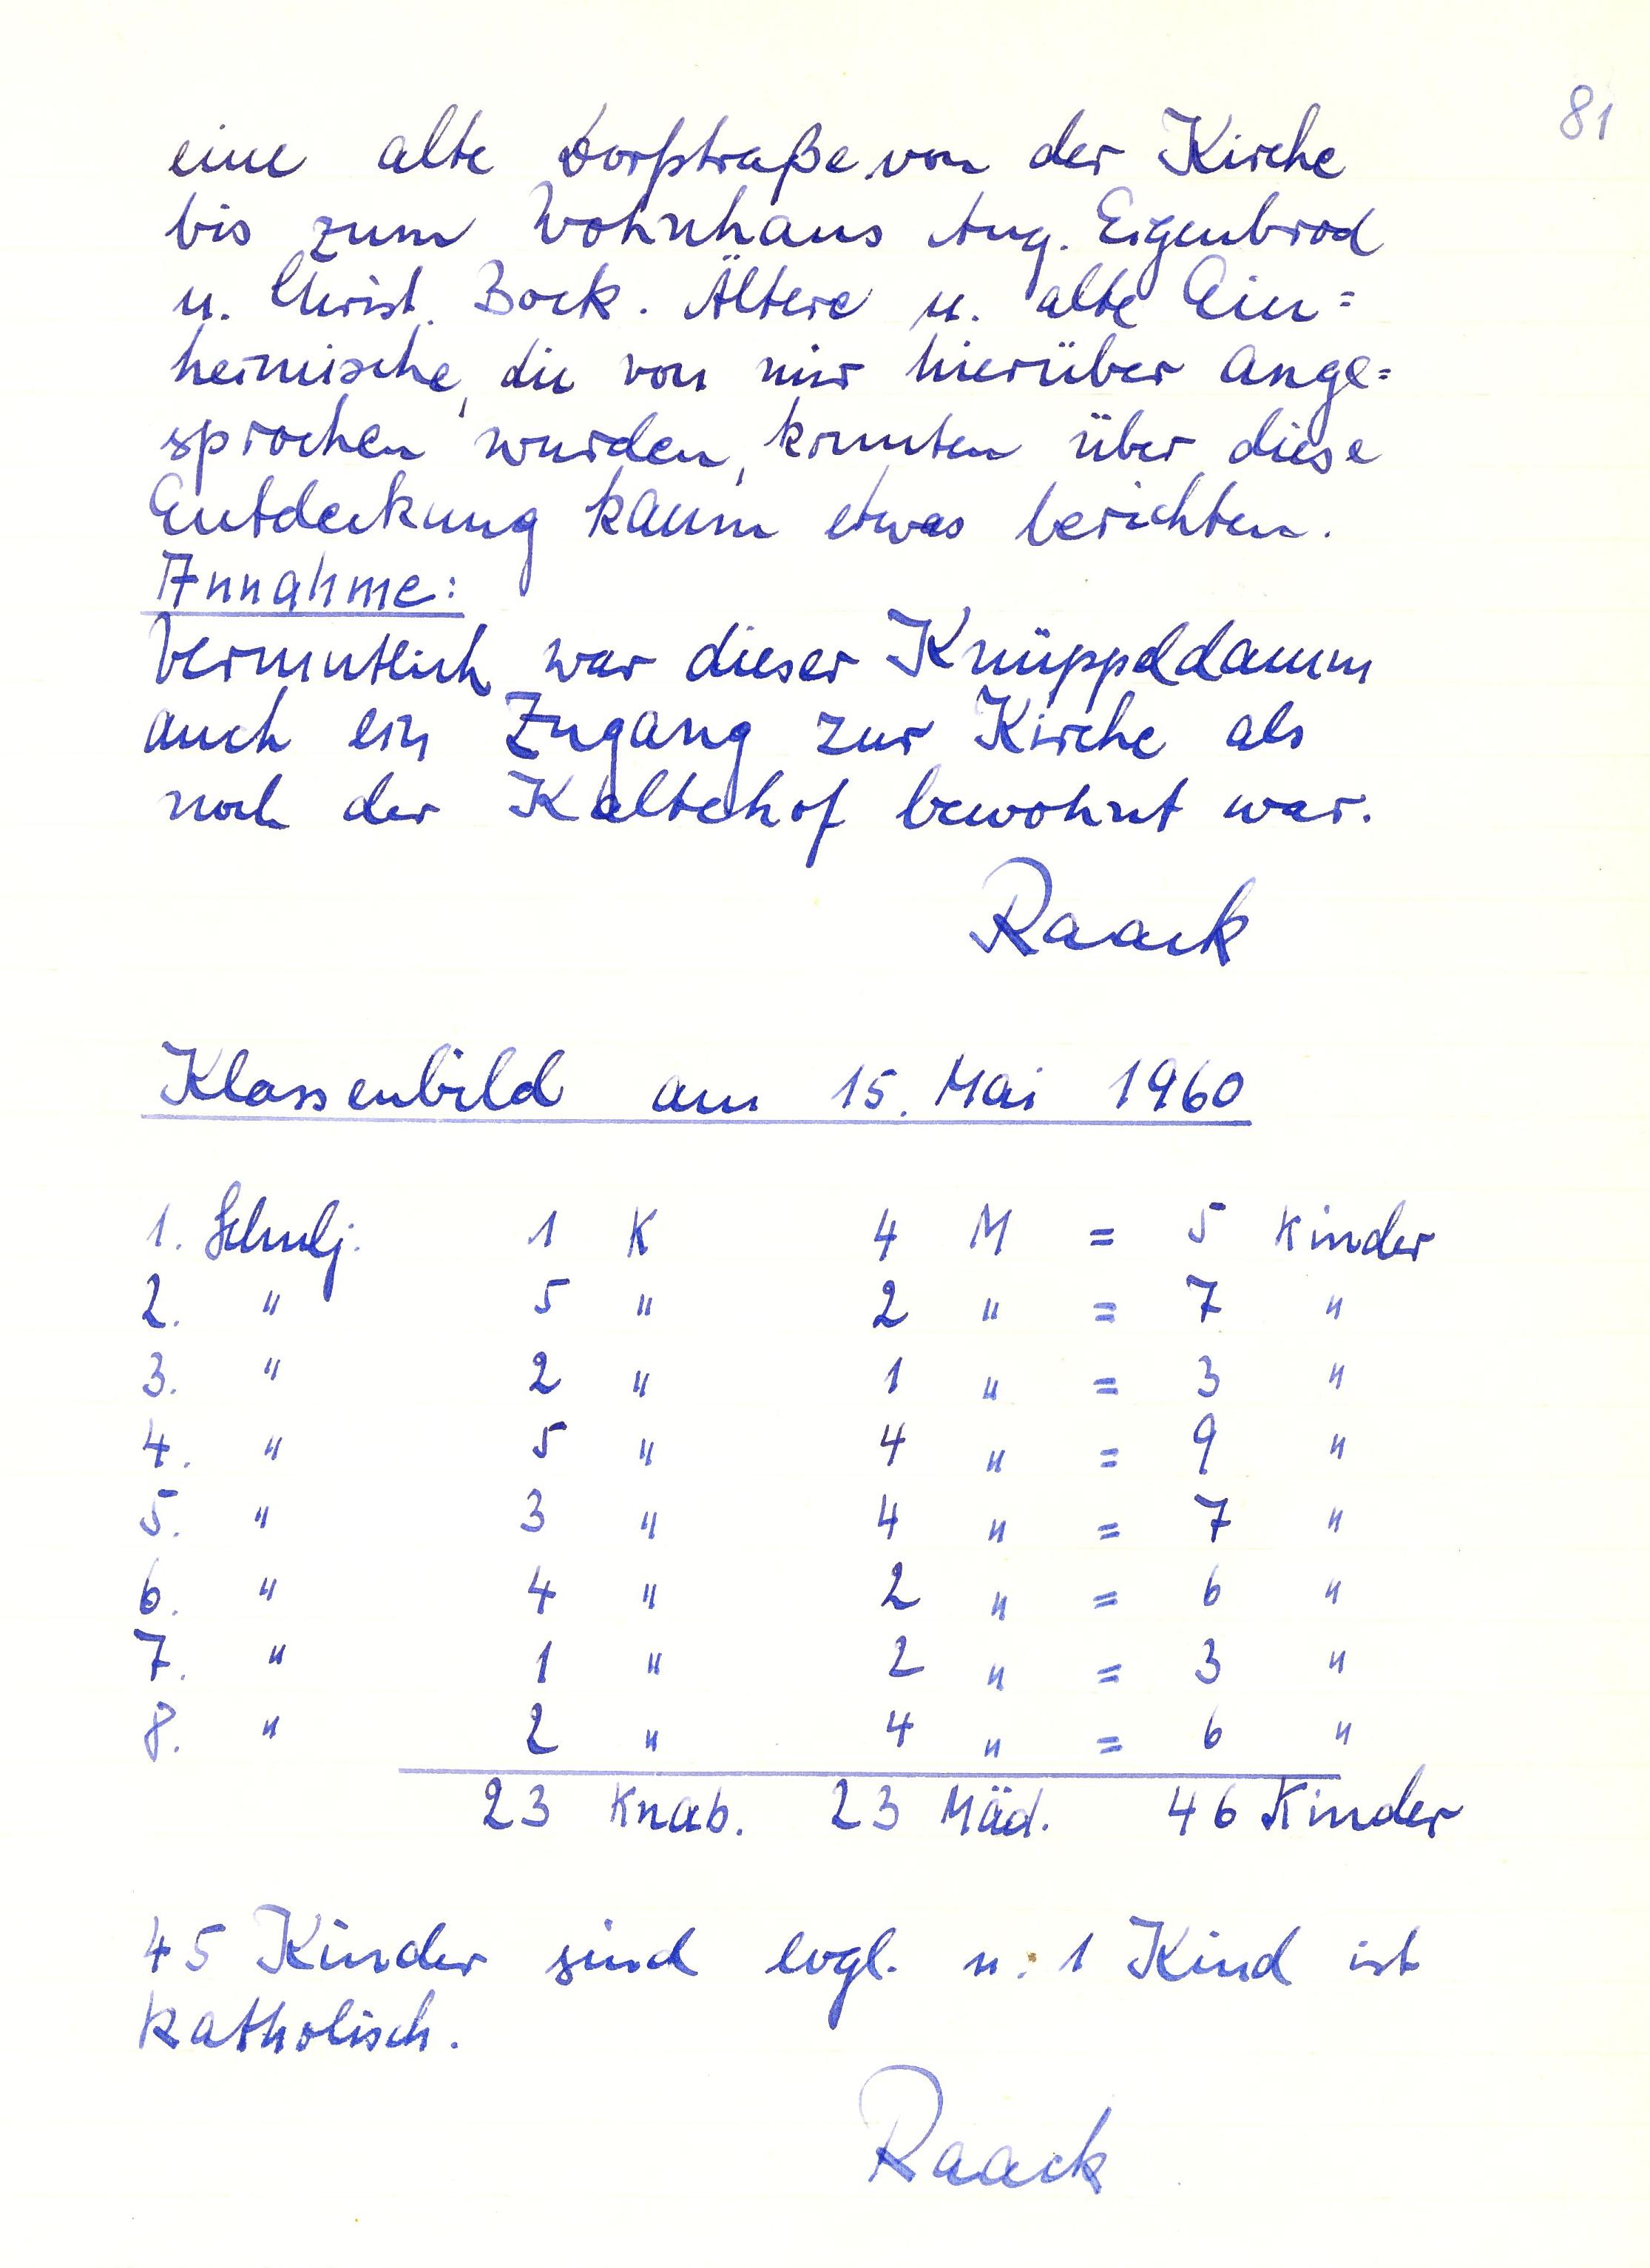 81
eine alte Dorfstraße von der Kirche
bis zum Wohnhaus Aug. Eigenbrod
u. Christ. Bock. Ältere u. alte Ein=
heimische, die von mir hierüber ange=
sprochen wurden, konnten über diese
Entdeckung kaum etwas berichten.
Annahme:
Vermutlich war dieser Knüppeldamm
auch ein Zugang zur Kirche als
noch der Kaltehof bewohnt war.
Raack
Klassenbild am 15. Mai 1960
1. Schulj. 1 K 4 M = 5 Kinder
2. " 5 " 2 " = 7 "
3. " 2 " 1 " = 3 "
4. " 5 " 4 " = 9 "
5. " 3 " 4 " = 7 "
6. " 4 " 2 " = 6 "
7. " 1 " 2 " = 3 "
8. " 2 " 4 " = 6 "
23 Knab. 23 Mäd. 46 Kinder
45 Kinder sind evgl. u. 1 Kind ist
katholisch.
Raack